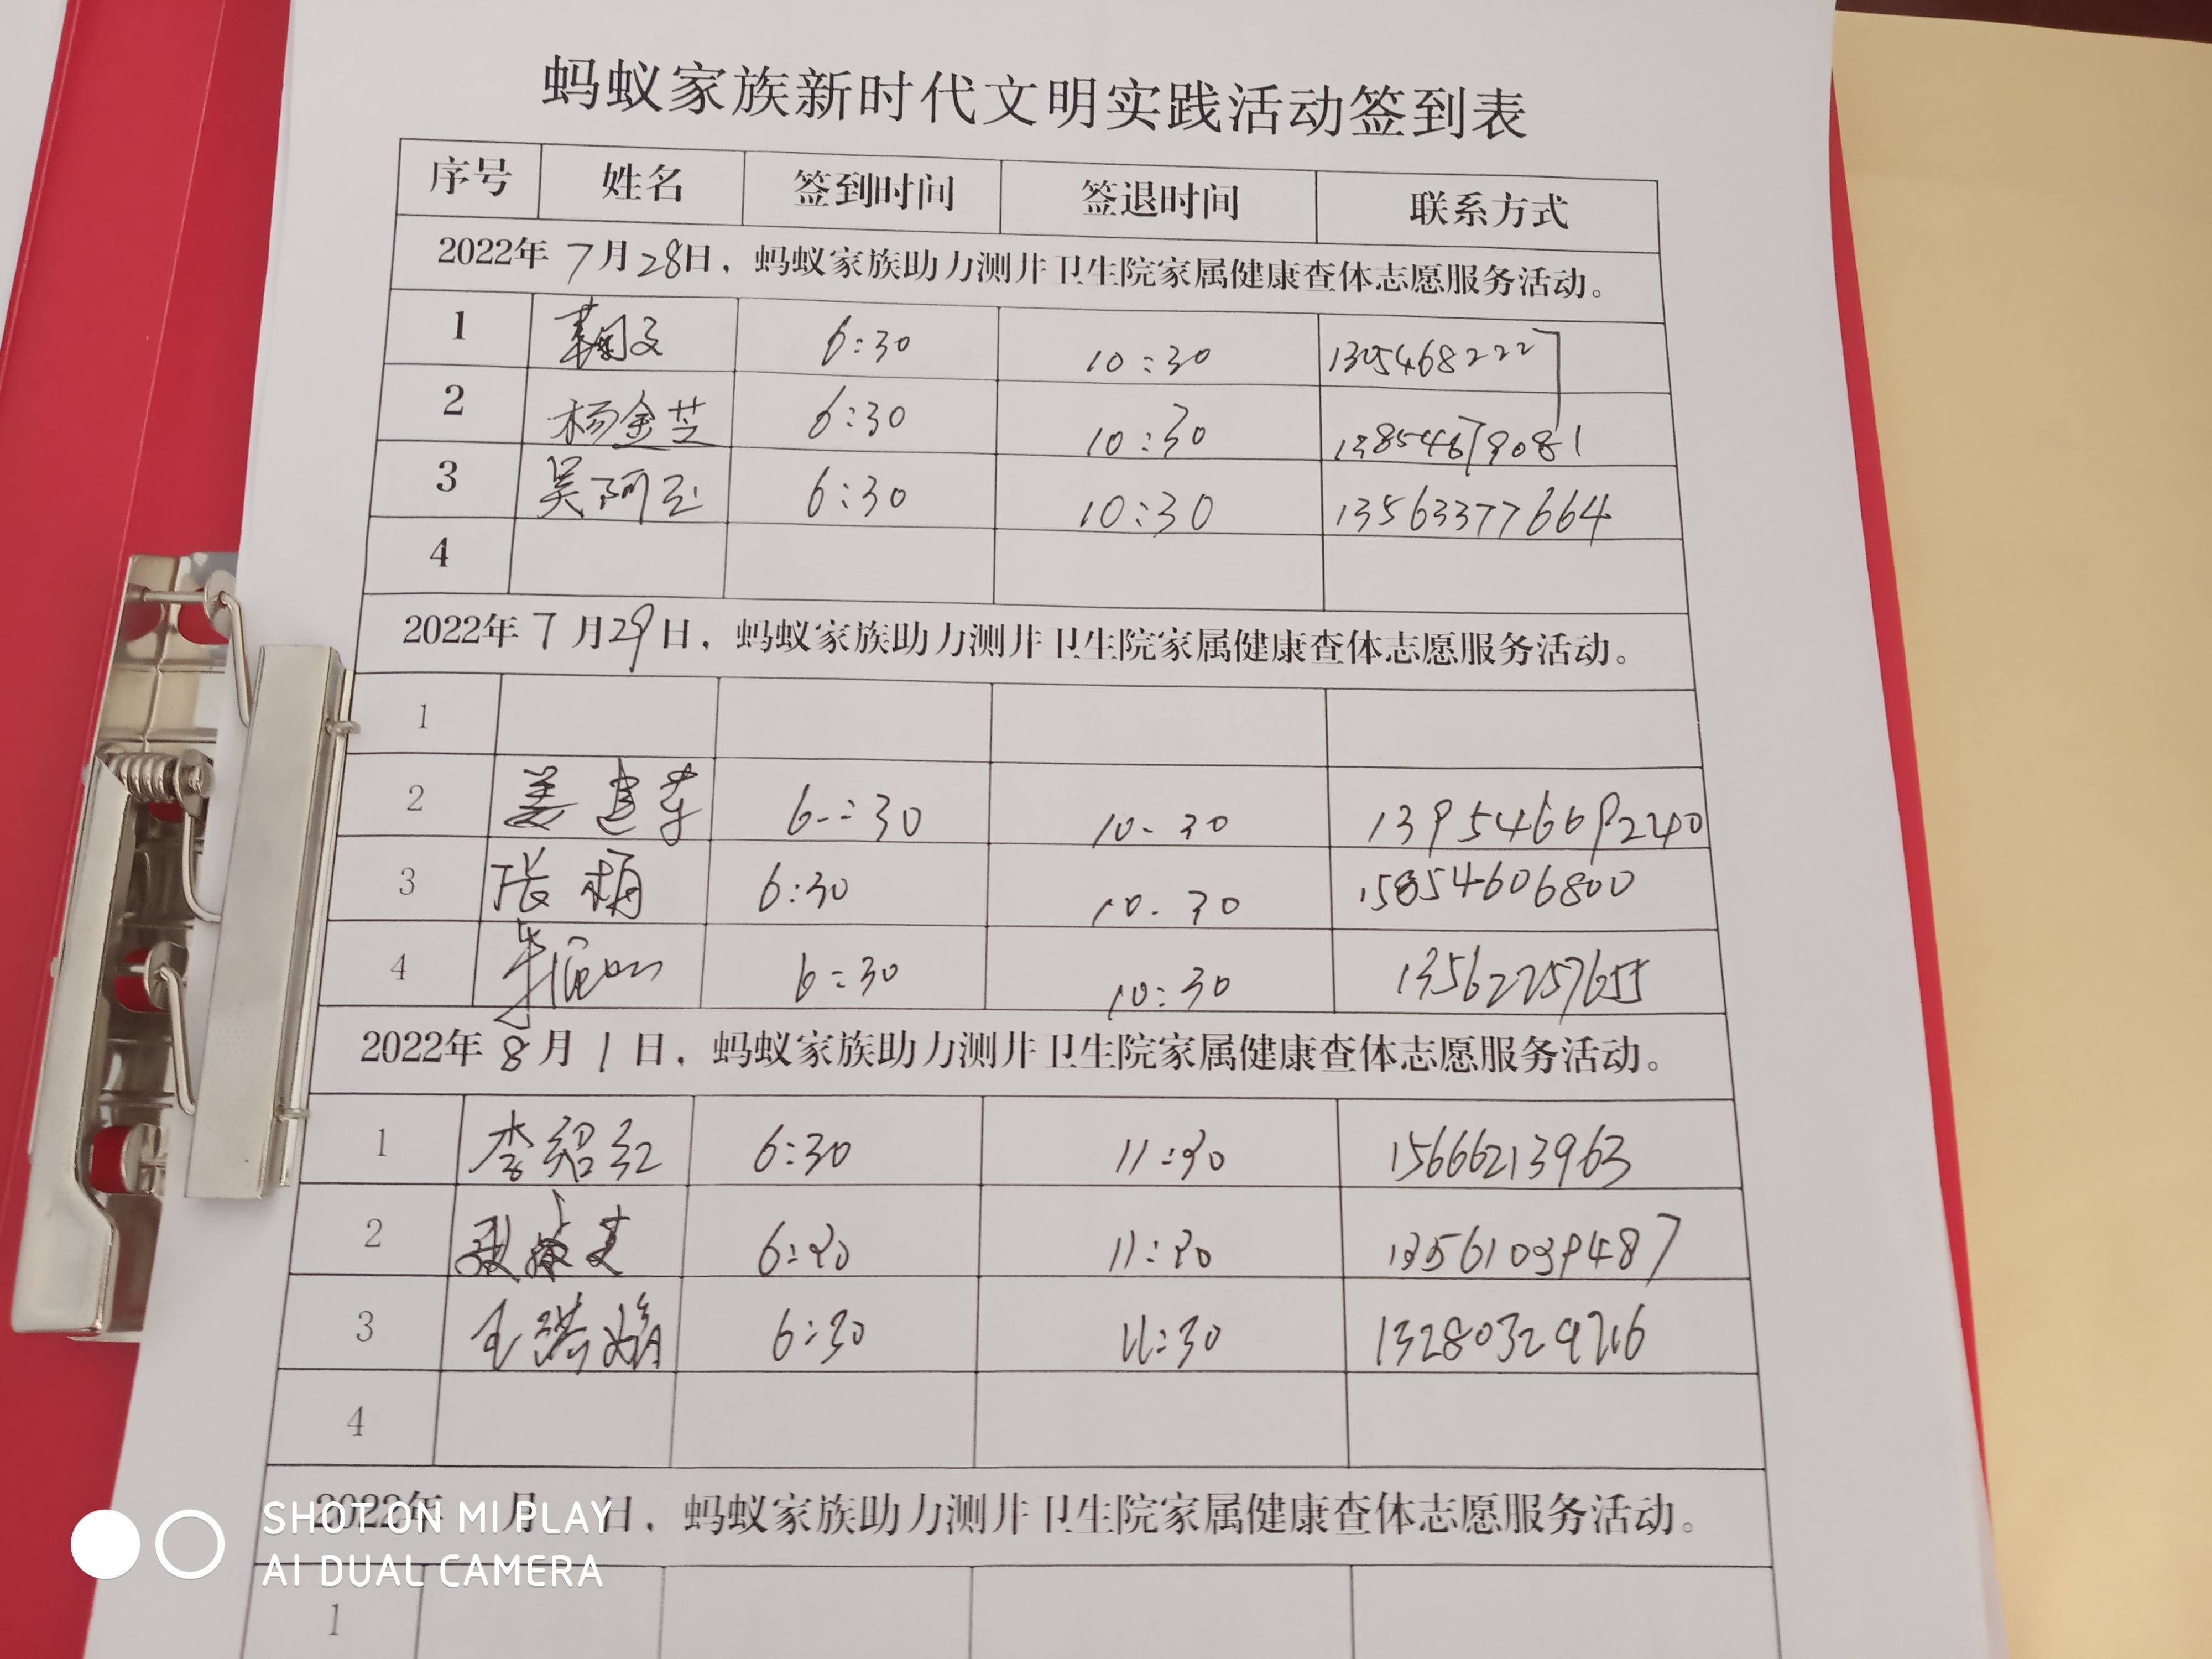 蚂蚁家族新时代文明实践活动签到表
序号 姓名 签到时间 签退时间 联系方式
2022年 7月28日，蚂蚁家族助力测井卫生院家属健康查体志愿服务活动。
1 6:30 10:30
2 杨金芝 6:30 10:30 13854679081
3 吴阿玉 6:30 10:30 13563377664
4
2022年 7月29日，蚂蚁家族助力测井卫生院家属健康查体志愿服务活动。
1
2 姜建华 6:30 10:30
3 张梅 6:30 10:30 15854606800
4 6:30 10:30 13562257655
2022年 8月1日，蚂蚁家族助力测井卫生院家属健康查体志愿服务活动。
1 李绍红 6:30 11:30 15666213963
2 6:30 11:30 13561039487
3 6:30 11:30 13280329716
4
2022年 月 日，蚂蚁家族助力测井卫生院家属健康查体志愿服务活动。
1
SHOT ON MI PLAY
AI DUAL CAMERA